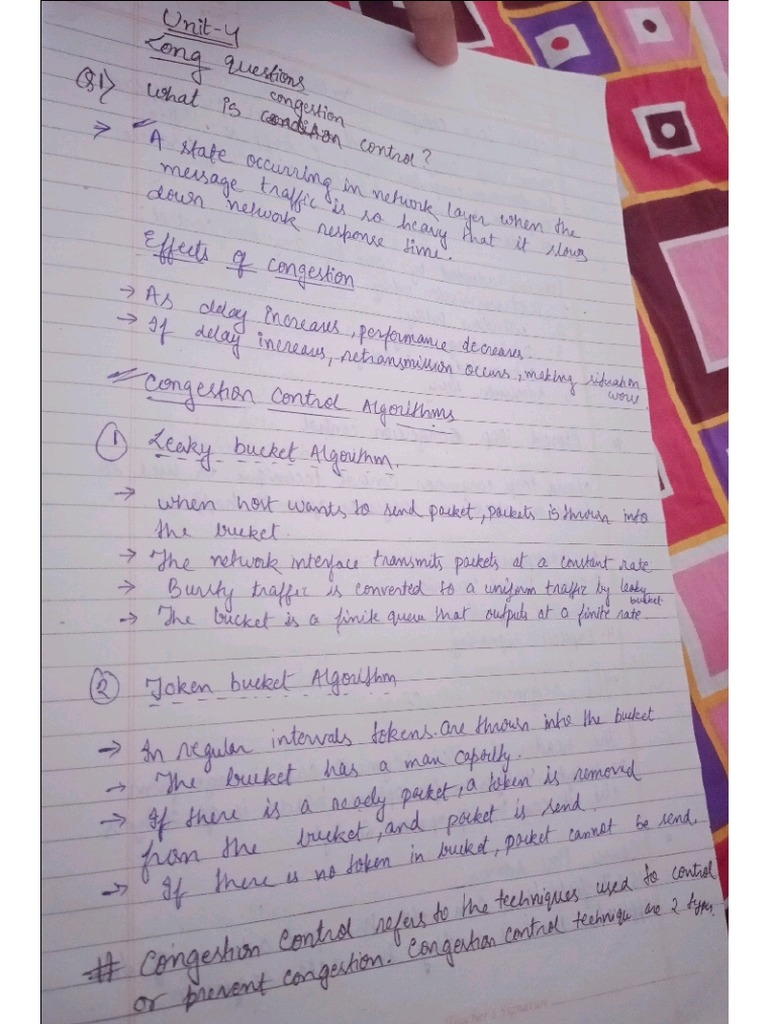 Unit-4
Long questions
Q1) What is condition congestion control?
⇒ A state occurring in network layer when the
message traffic is so heavy that it slows
down network response time.
Effects of congestion
→ As delay increases, performance decreases.
→ If delay increases, retransmission occurs, making situation
worse
Congestion Control Algorithms
① Leaky bucket Algorithm.
→ when host wants to send packet, packets is thrown into
the bucket.
→ The network interface transmits packets at a constant rate
→ Bursty traffic is converted to a uniform traffic by leaky
bucket
→ The bucket is a finite queue that outputs at a finite rate.
② Token bucket Algorithm
→ In regular intervals tokens are thrown into the bucket
→ The bucket has a max capacity.
→ If there is a ready packet, a token is removed
from the bucket, and packet is send.
→ If there is no token in bucket, packet cannot be send.
# Congestion Control refers to the techniques used to control
or prevent congestion. Congestion control technique are 2 types.